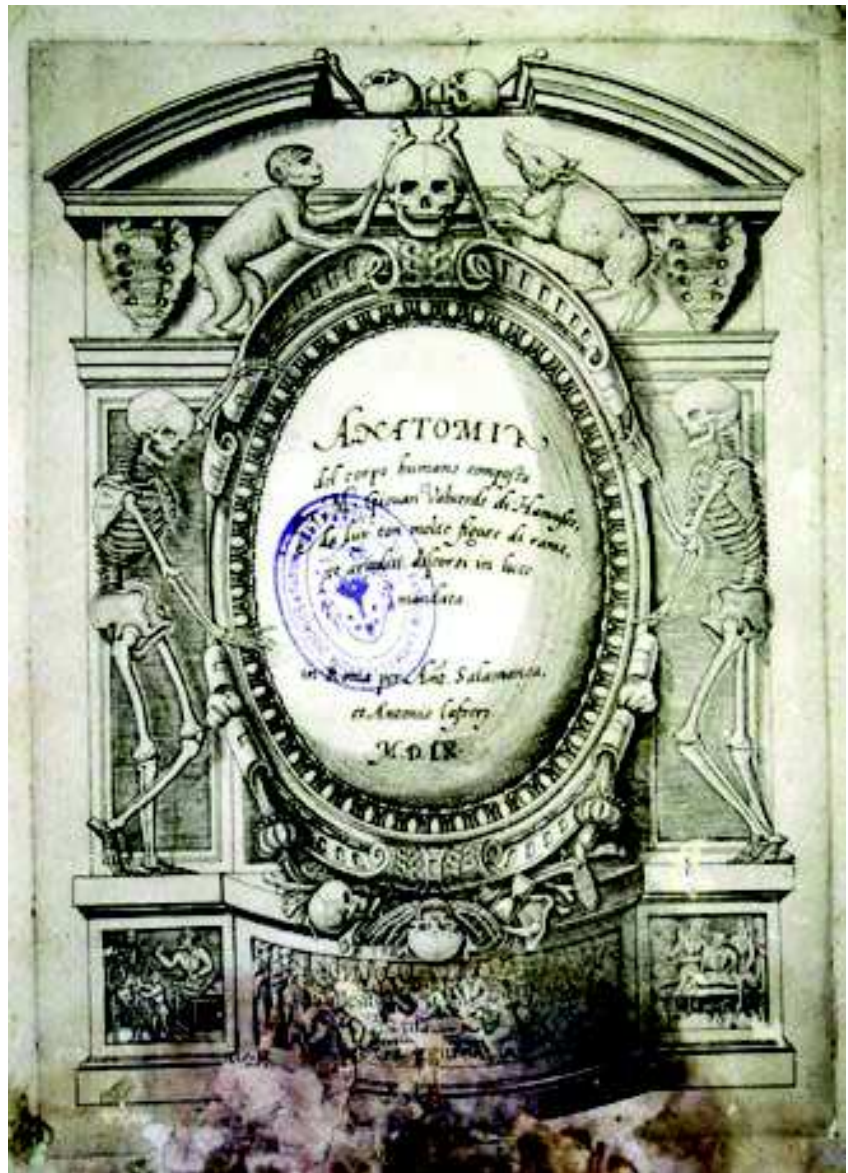 ANATOMIA
del corpo humano composta
M. Giouan Valuerde di Hamusco,
da luy con molte figure di rame,
et eruditi discorsi in luce
mandata.
in Roma per Ant. Salamanca,
et Antonio Lafrerj.
M.D.LX.